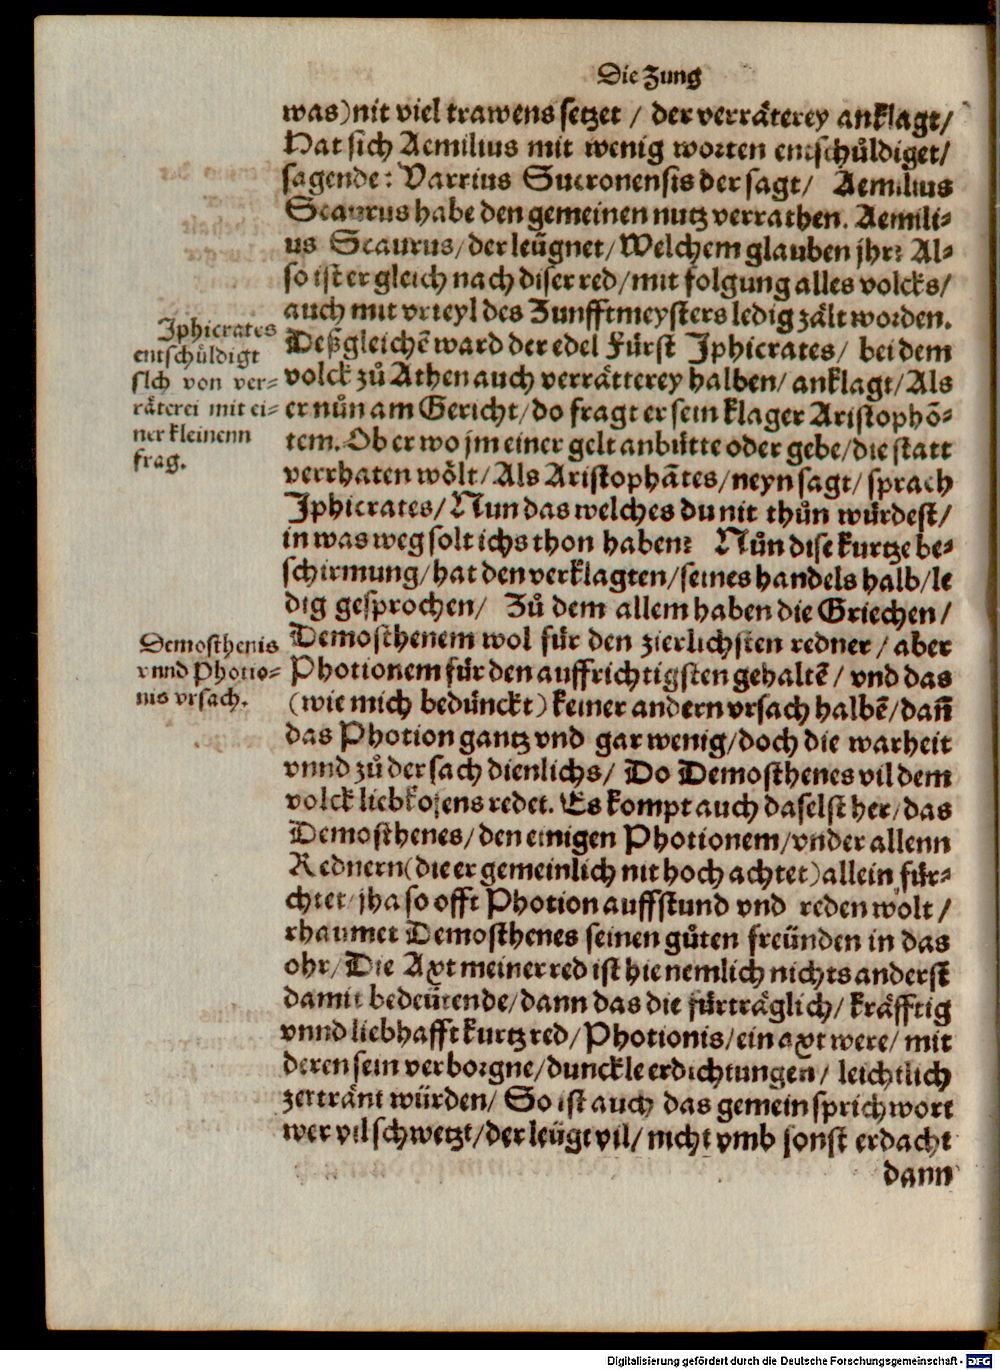 Die Zung
was) nit viel trawens setzet / der verräterey anklagt/
Hat sich Aemilius mit wenig worten entschůldiget/
sagende: Varrius Sucronensis der sagt/ Aemilius
Scaurus habe den gemeinen nutz verrathen. Aemili-
us Scaurus/ der leügnet/ Welchem glauben jhr? Al-
so ist er gleich nach diser red/ mit folgung alles volcks/
auch mit vrteyl des Zunfftmeysters ledig zält worden.
Deßgleichē ward der edel Fürst Jphicrates/ bei dem
volck zů Athen auch verrätterey halben/ anklagt/ Als
er nůn am Gericht/ do fragt er sein klager Aristophō-
tem. Ob er wo jm einer gelt anbütte oder gebe/ die statt
verrhaten wölt/ Als Aristophātes/ neyn sagt/ sprach
Jphicrates/ Nun das welches du nit thůn würdest/
in was weg solt ichs thon haben? Nůn dise kurtze be-
schirmung/ hat den verklagten/ seines handels halb/ le
dig gesprochen/ Zů dem allem haben die Griechen/
Demosthenem wol für den zierlichsten redner/ aber
Photionem für den auffrichtigsten gehaltē/ vnd das
(wie mich bedünckt) keiner andern vrsach halbē/ dañ
das Photion gantz vnd gar wenig/ doch die warheit
vnnd zů der sach dienlichs/ Do Demosthenes vil dem
volck liebkosens redet. Es kompt auch daselst her/ das
Demosthenes/ den einigen Photionem/ vnder allenn
Rednern (die er gemeinlich nit hoch achtet) allein für-
chtet/ jha so offt Photion auffstund vnd reden wolt/
rhaumet Demosthenes seinen gůten freünden in das
ohr/ Die Axt meiner red ist hie nemlich nichts anderst
damit bedeütende/ dann das die fürträglich/ kräfftig
vnnd liebhafft kurtz red/ Photionis/ ein axt were/ mit
deren sein verborgne/ dunckle erdichtungen/ leichtlich
zertränt würden/ So ist auch das gemein sprichwort
wer vil schwetzt/ der leügt vil/ nicht vmb sonst erdacht
dann
Jphicrates
entschůldigt
sich von ver-
räterei mit ei-
ner kleinenn
frag.
Demosthenis
vnnd Photio-
nis vrsach.
Digitalisierung gefördert durch die Deutsche Forschungsgemeinschaft - DFG